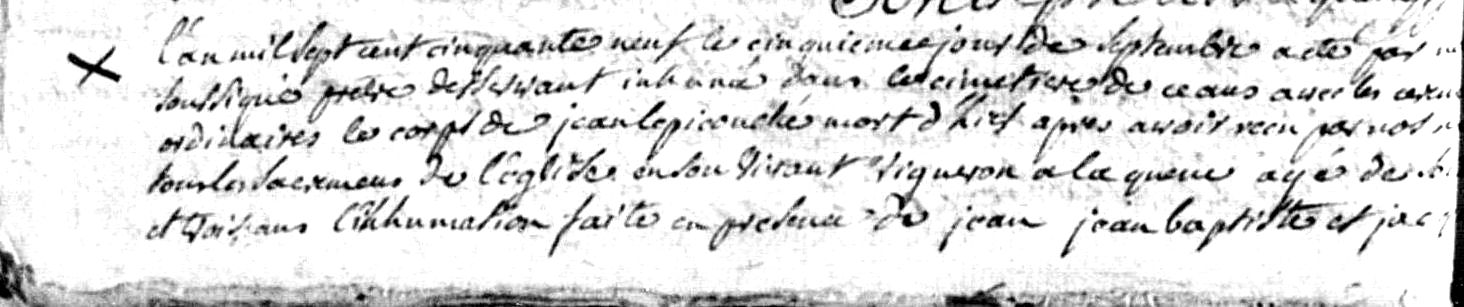 L'an mil sept cent cinquante neuf le cinquieme jour de septembre a été par
soussigné prêtre desservant inhumé dans le cimetiere de ceans avec les cerem
ordinaires le corps de jean lepicouché mort d'hier apres avoir recu par nos m
tous les sacremens de l'église en son vivant vigneron a la queue agé de
et trois ans l'inhumation faite en presence de jean jean baptiste et jacq